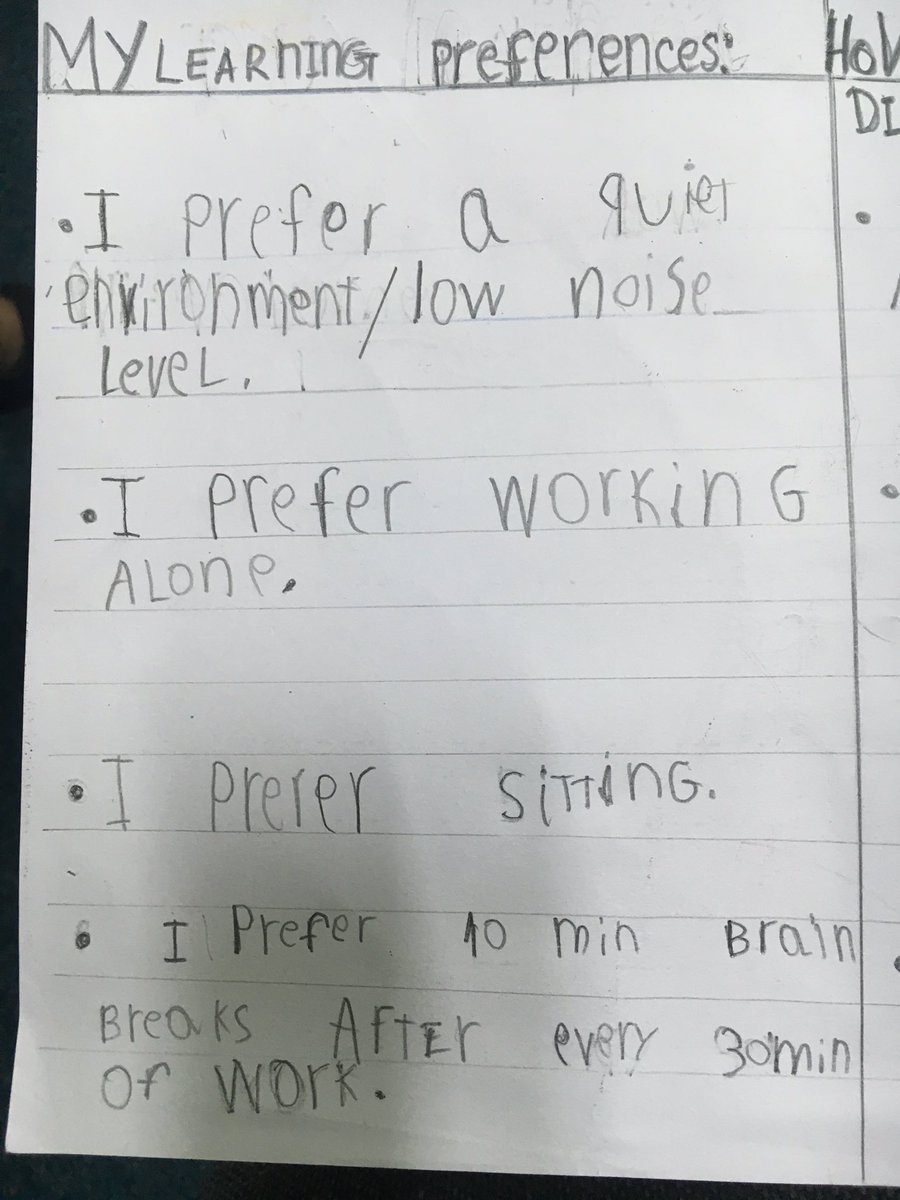 MY LEARNING preferences:
HOW
DI
• I prefer a quiet
environment/low noise
LeveL.
• I Prefer workinG
ALone.
• I Prerer siTTinG.
• I Prefer 10 min Brain
Breaks AfTER every 30min
Of WORK.